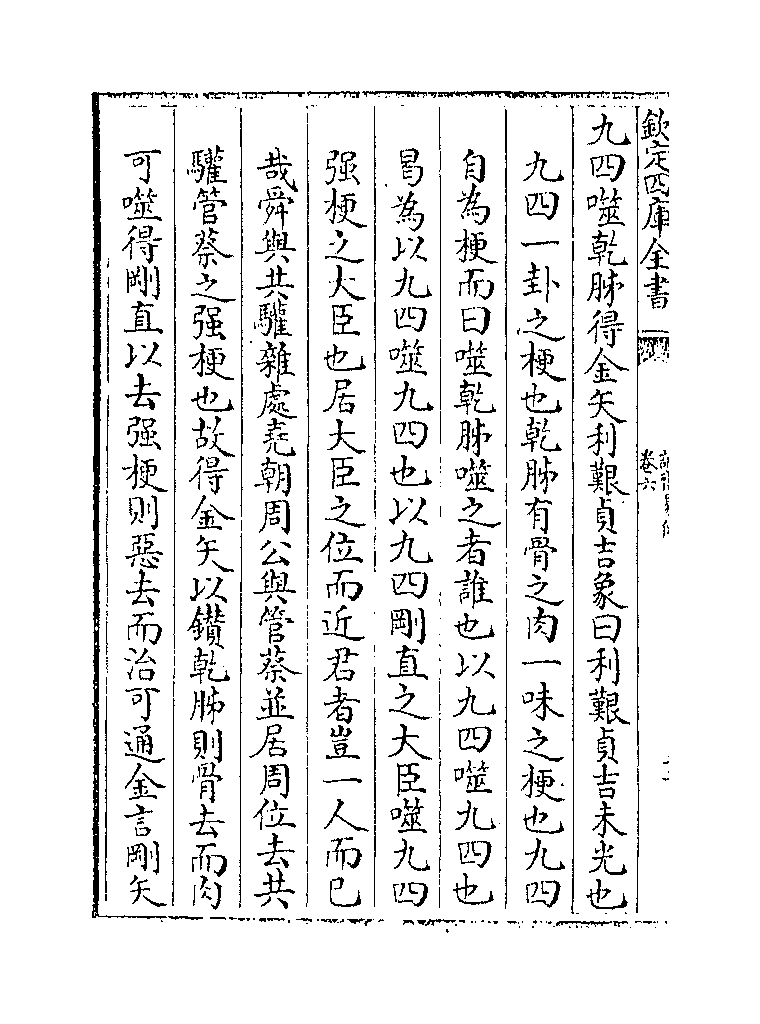 欽定四庫全書
卷六
九四噬乾胏得金矢利艱貞吉象曰利艱貞吉未光也
九四一卦之梗也乾胏有骨之肉一味之梗也九四
自為梗而曰噬乾胏噬之者誰也以九四噬九四也
曷為以九四噬九四也以九四剛直之大臣噬九四
强梗之大臣也居大臣之位而近君者豈一人而已
哉舜與共驩雜處堯朝周公與管蔡並居周位去共
驩管蔡之强梗也故得金矢以鑽乾胏則骨去而肉
可噬得剛直以去强梗則惡去而治可通金言剛矢